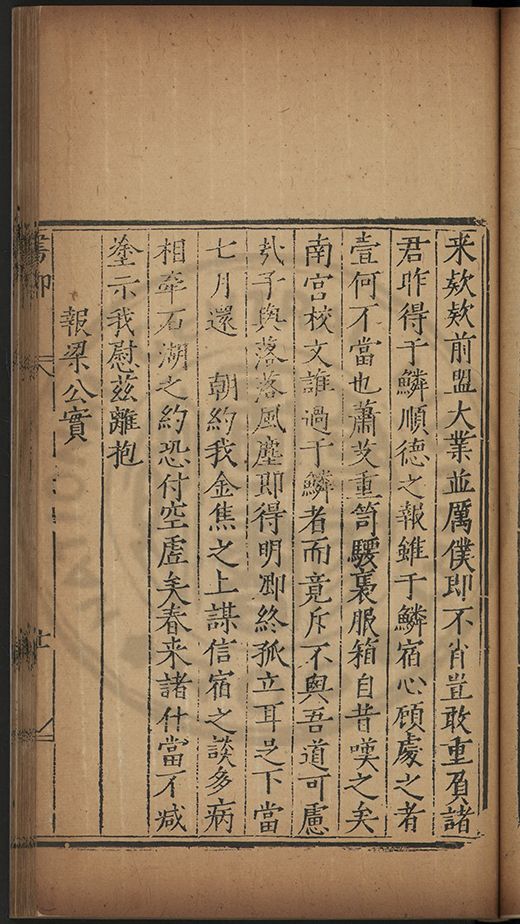 来欬欬前盟大業並厲僕即不肖豈敢重負諸
君昨得于鱗順德之報雖于鱗宿心顧處之者
壹何不當也蕭艾重笥騕褭服箱自昔嘆之矣
南宮校文誰過于鱗者而竟斥不與吾道可慮
哉子與落落風塵即得明卿終孤立耳足下當
七月還 朝約我金焦之上謀信宿之談多病
相牽石湖之約恐付空虛矣春来諸什當不减
塗示我慰茲離抱
報梁公實